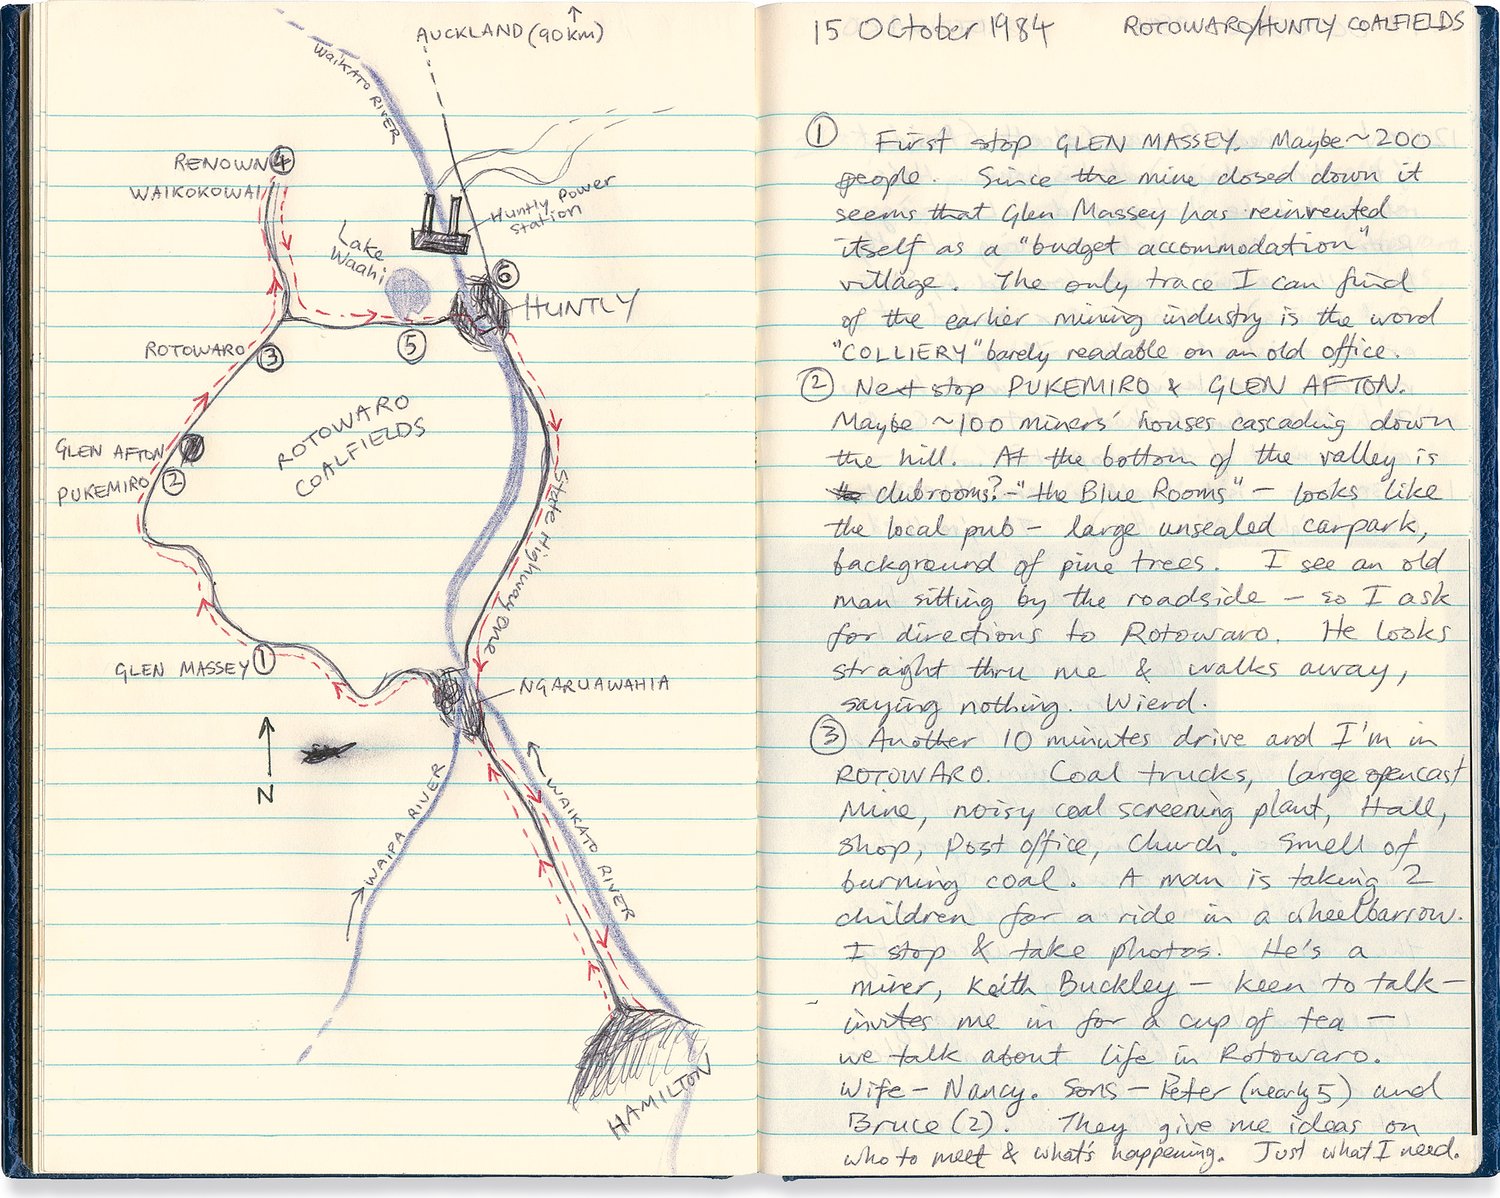 AUCKLAND (90km)
WAIKATO RIVER
RENOWN 4
WAIKOKOWAI
Huntly Power
Station
Lake
Waahi
6
HUNTLY
5
ROTOWARO
3
ROTOWARO
COALFIELDS
GLEN AFTON
PUKEMIRO 2
State Highway One
GLEN MASSEY 1
NGARUAWAHIA
N
WAIPA RIVER
WAIKATO RIVER
HAMILTON
15 October 1984 ROTOWARO/HUNTLY COALFIELDS
1 First stop GLEN MASSEY. Maybe ~200
people. Since the mine closed down it
seems that Glen Massey has reinvented
itself as a "budget accommodation"
village. The only trace I can find
of the earlier mining industry is the word
"COLLIERY" barely readable on an old office.
2 Next stop PUKEMIRO & GLEN AFTON.
Maybe ~100 miners' houses cascading down
the hill. At the bottom of the valley is
clubrooms? - "the Blue Rooms" - looks like
the local pub - large unsealed carpark,
background of pine trees. I see an old
man sitting by the roadside - so I ask
for directions to Rotowaro. He looks
straight thru me & walks away,
saying nothing. Wierd.
3 Another 10 minutes drive and I'm in
ROTOWARO. Coal trucks, large opencast
Mine, noisy coal screening plant, Hall,
shop, Post office, Church. Smell of
burning coal. A man is taking 2
children for a ride in a wheelbarrow.
I stop & take photos. He's a
miner, Keith Buckley - keen to talk -
invites me in for a cup of tea -
we talk about life in Rotowaro.
Wife - Nancy. Sons - Peter (nearly 5) and
Bruce (2). They give me ideas on
who to meet & what's happening. Just what I need.